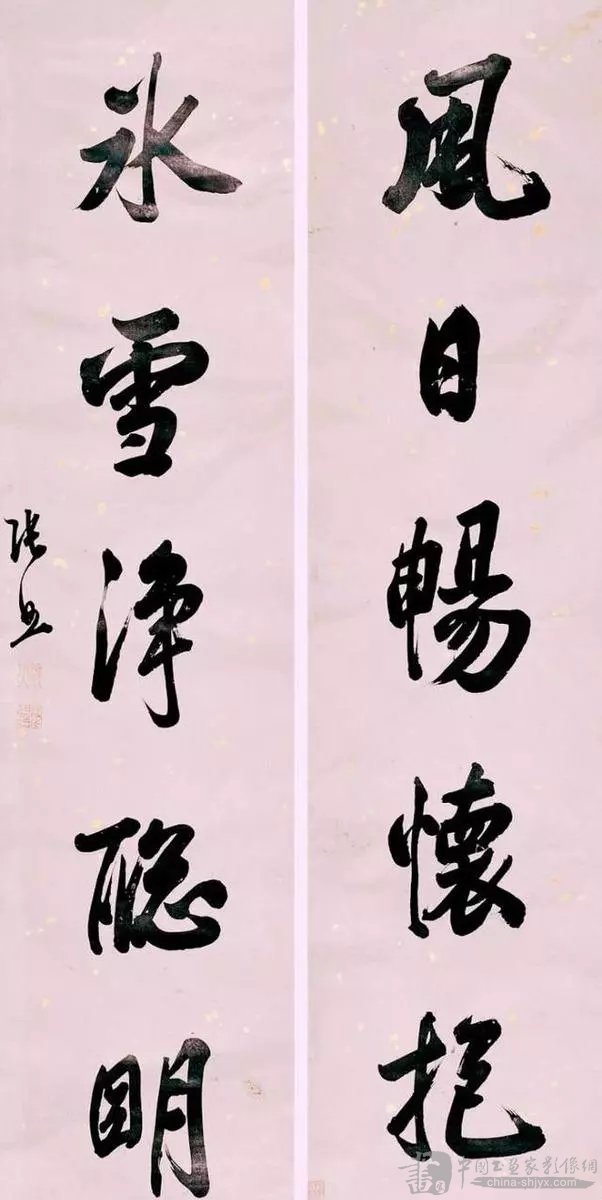 風日暢懷抱
冰雪淨聰明
張照
中国书画家影像網
china-shjyx.com